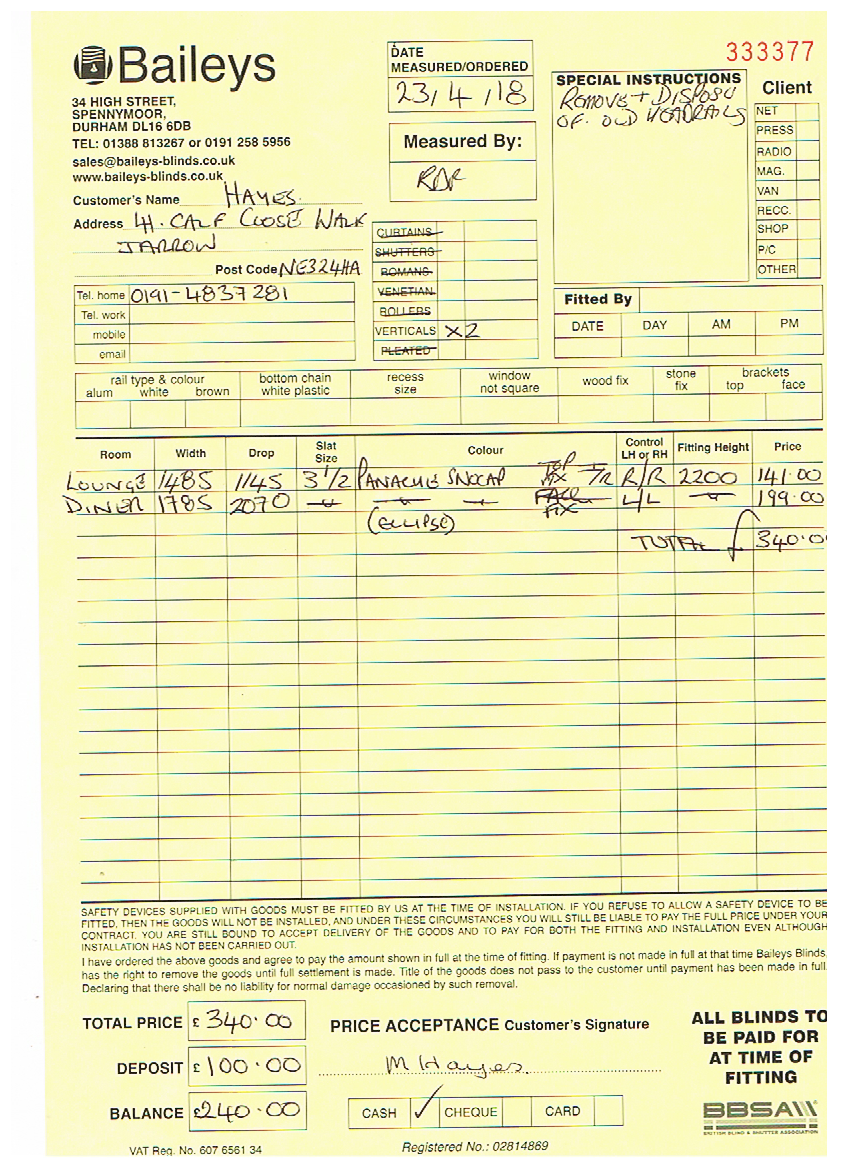 Baileys
34 HIGH STREET,
SPENNYMOOR,
DURHAM DL16 6DB
TEL: 01388 813267 or 0191 258 5956
sales@baileys-blinds.co.uk
www.baileys-blinds.co.uk
Customer's Name HAYES.
Address 4H. CALF CLOSE WALK
JARROW
Post Code NE324HA
Tel. home 0191-4837281
Tel. work
mobile
email
DATE
MEASURED/ORDERED
23/4/18
Measured By:
CURTAINS
SHUTTERS
ROMANS
VENETIAN
ROLLERS
VERTICALS X2
PLEATED
333377
SPECIAL INSTRUCTIONS
REMOVE + DISPOSE
OF OLD HEADRAILS
Client
NET
PRESS
RADIO
MAG.
VAN
RECC.
SHOP
P/C
OTHER
Fitted By
DATE DAY AM PM
rail type & colour bottom chain recess window wood fix stone brackets
alum white brown white plastic size not square fix top face
Room Width Drop Slat Size Colour Control LH or RH Fitting Height Price
LOUNGE 1485 1145 3 1/2 PANACHE SNOCAP TOP FIX T/R R/R 2200 141.00
DINER 1785 2070 " " " FACE FIX L/L " 199.00
(ELLIPSE)
TOTAL £ 340.00
SAFETY DEVICES SUPPLIED WITH GOODS MUST BE FITTED BY US AT THE TIME OF INSTALLATION. IF YOU REFUSE TO ALLOW A SAFETY DEVICE TO BE
FITTED, THEN THE GOODS WILL NOT BE INSTALLED, AND UNDER THESE CIRCUMSTANCES YOU WILL STILL BE LIABLE TO PAY THE FULL PRICE UNDER YOUR
CONTRACT. YOU ARE STILL BOUND TO ACCEPT DELIVERY OF THE GOODS AND TO PAY FOR BOTH THE FITTING AND INSTALLATION EVEN ALTHOUGH
INSTALLATION HAS NOT BEEN CARRIED OUT.
I have ordered the above goods and agree to pay the amount shown in full at the time of fitting. If payment is not made in full at that time Baileys Blinds,
has the right to remove the goods until full settlement is made. Title of the goods does not pass to the customer until payment has been made in full.
Declaring that there shall be no liability for normal damage occasioned by such removal.
TOTAL PRICE £ 340.00
DEPOSIT £ 100.00
BALANCE £ 240.00
PRICE ACCEPTANCE Customer's Signature
M Hayes
CASH ✓ CHEQUE CARD
ALL BLINDS TO
BE PAID FOR
AT TIME OF
FITTING
BBSA
BRITISH BLIND & SHUTTER ASSOCIATION
VAT Reg. No. 607 6561 34
Registered No.: 02814869